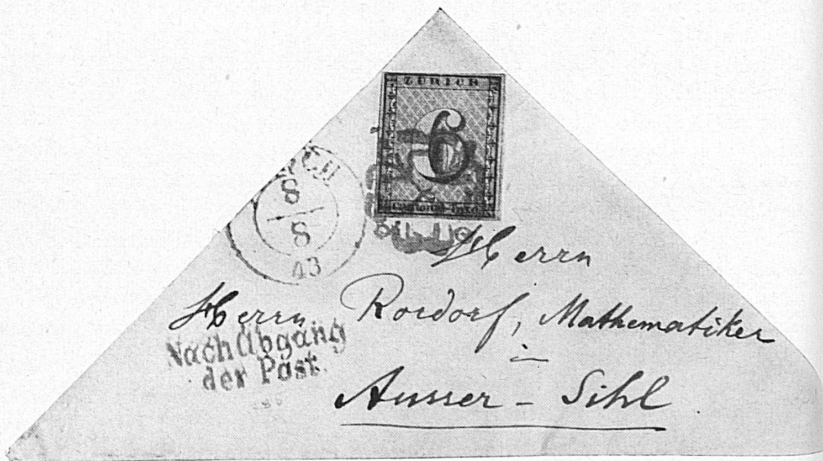 ZÜRICH
6
Cantonal-Taxe
8
8
43
Herrn
Herrn Rordorf, Mathematiker
in
Ausser-Sihl
Nach Abgang
der Post.